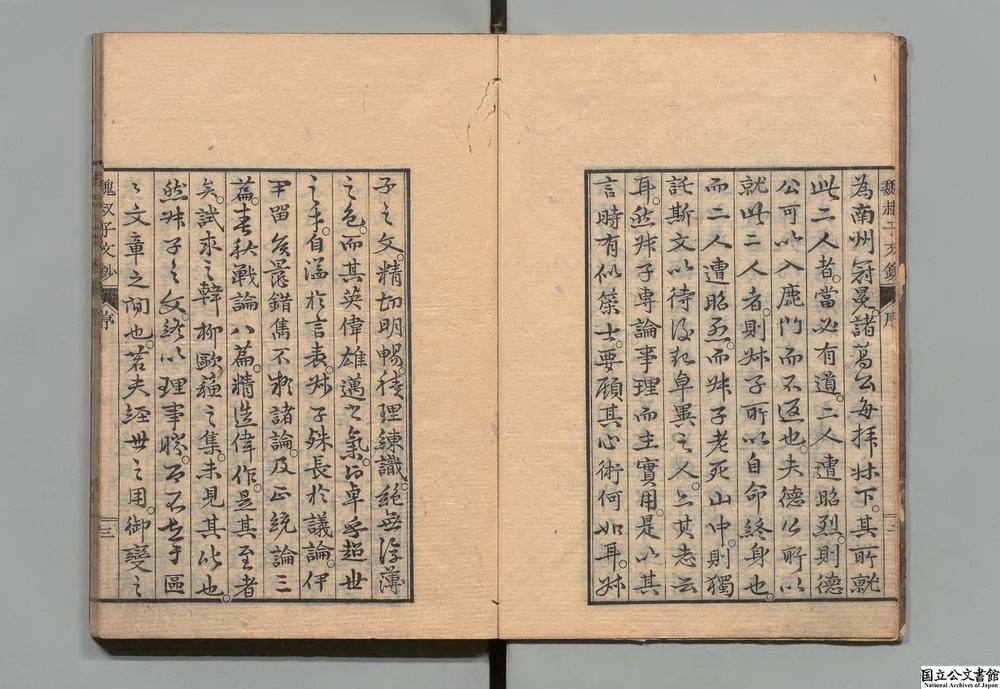 魏叔子文鈔 序 二
為南州冠冕。諸葛公每拜牀下。其所就
此二人者。當必有道。二人遭昭烈。則德
公可以入鹿門而不返也。夫德公所以
就此二人者。則叔子所以自命終身也。
而二人遭昭烈。而叔子老死山中。則獨
託斯文以待後起卓異之人。亦其志云
耳。然叔子專論事理而主實用。是以其
言時有似策士。要顧其心術何如耳。叔
子之文。精切明暢。積理練識。絕無浮薄
之色。而其英偉雄邁之氣。卓乎超世
之才。自溢於言表。叔子殊長於議論。伊
尹留侯鼂錯雋不疑諸論。及正統論三
篇。春秋戰論八篇。精造偉作。是其至者
矣。試求之韓柳歐蘇之集。未見其比也。
然叔子之文。終以理事勝。而不在于區
區文章之間也。若夫經世之用。御變之
魏叔子文鈔 序 三
国立公文書館
National Archives of Japan